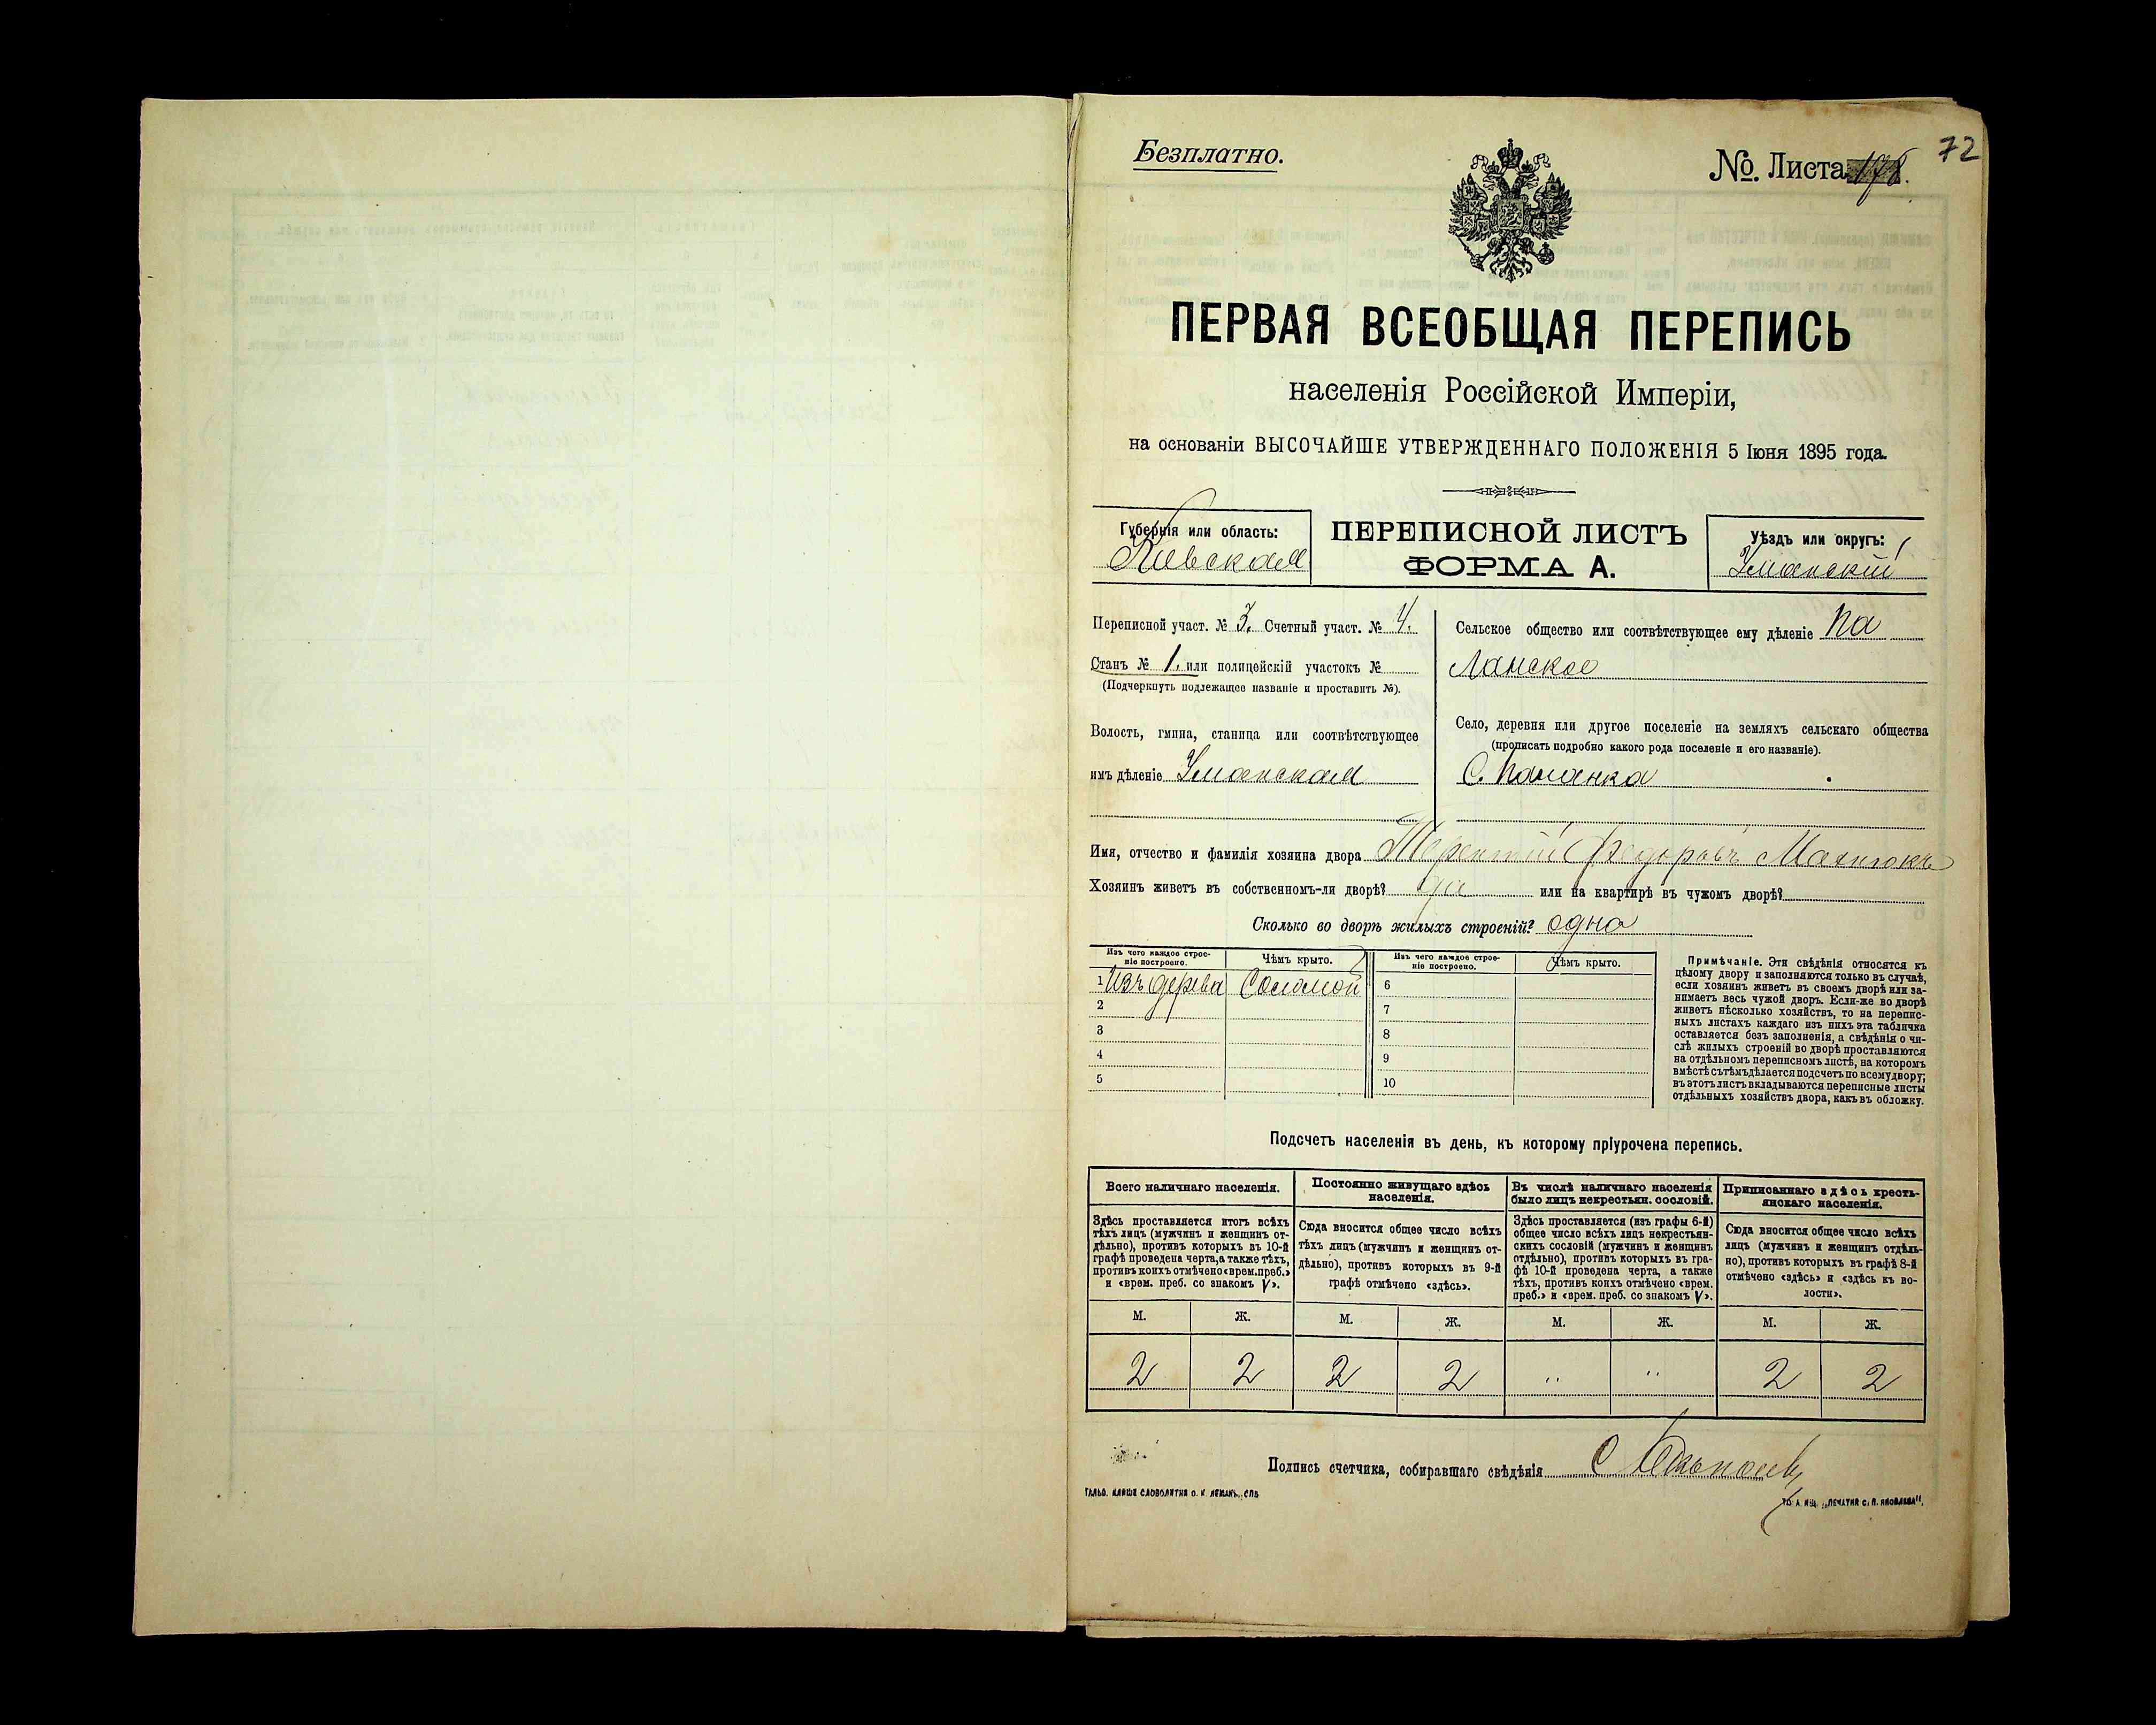 Безплатно.
№. Листа
72
ПЕРВАЯ ВСЕОБЩАЯ ПЕРЕПИСЬ
населенія Россійской Имперіи,
на основаніи ВЫСОЧАЙШЕ УТВЕРЖДЕННАГО ПОЛОЖЕНІЯ 5 Іюня 1895 года.
Губернія или область:
Кіевская
ПЕРЕПИСНОЙ ЛИСТЪ
ФОРМА А.
Уѣздъ или округъ:
Уманскій
Переписной участ. № 3. Счетный участ. № 4.
Станъ № 1. или полицейскій участокъ №
(Подчеркнуть подлежащее названіе и проставить №).
Волость, гмина, станица или соотвѣтствующее
имъ дѣленіе Уманская
Сельское общество или соотвѣтствующее ему дѣленіе Па
ланское
Село, деревня или другое поселеніе на земляхъ сельскаго общества
(прописать подробно какого рода поселеніе и его названіе).
С. Паланка
Имя, отчество и фамилія хозяина двора Терентій Федоровъ
Хозяинъ живетъ въ собственномъ-ли дворѣ? да или на квартирѣ въ чужомъ дворѣ?
Сколько во дворѣ жилыхъ строеній? одно
Изъ чего каждое строе-
ніе построено.
Чѣмъ крыто.
1 Изъ дерева Соломой
2
3
4
5
Изъ чего каждое строе-
ніе построено.
Чѣмъ крыто.
6
7
8
9
10
Примѣчаніе. Эти свѣдѣнія относятся къ
цѣлому двору и заполняются только въ случаѣ,
если хозяинъ живетъ въ своемъ дворѣ или за-
нимаетъ весь чужой дворъ. Если-же во дворѣ
живетъ нѣсколько хозяйствъ, то на перепис-
ныхъ листахъ каждаго изъ нихъ эта табличка
оставляется безъ заполненія, а свѣдѣнія о чи-
слѣ жилыхъ строеній во дворѣ проставляются
на отдѣльномъ переписномъ листѣ, на которомъ
вмѣстѣ съ тѣмъ дѣлается подсчетъ по всему двору;
въ этотъ листъ вкладываются переписные листы
отдѣльныхъ хозяйствъ двора, какъ въ обложку.
Подсчетъ населенія въ день, къ которому пріурочена перепись.
Всего наличнаго населенія.
Здѣсь проставляется итогъ всѣхъ
тѣхъ лицъ (мужчинъ и женщинъ от-
дѣльно), противъ которыхъ въ 10-й
графѣ проведена черта, а также тѣхъ,
противъ коихъ отмѣчено «врем. преб.»
и «врем. преб. со знакомъ V».
М. Ж.
2 2
Постоянно живущаго здѣсь
населенія.
Сюда вносится общее число всѣхъ
тѣхъ лицъ (мужчинъ и женщинъ от-
дѣльно), противъ которыхъ въ 9-й
графѣ отмѣчено «здѣсь».
М. Ж.
2 2
Въ числѣ наличнаго населенія
было лицъ некрестьян. сословій.
Здѣсь проставляется (изъ графы 6-й)
общее число всѣхъ лицъ некрестьян-
скихъ сословій (мужчинъ и женщинъ
отдѣльно), противъ которыхъ въ гра-
фѣ 10-й проведена черта, а также
тѣхъ, противъ коихъ отмѣчено «врем.
преб.» и «врем. преб. со знакомъ V».
М. Ж.
" "
Приписаннаго здѣсь кресть-
янскаго населенія.
Сюда вносится общее число всѣхъ
лицъ (мужчинъ и женщинъ отдѣль-
но), противъ которыхъ въ графѣ 8-й
отмѣчено «здѣсь» и «здѣсь къ во-
лости».
М. Ж.
2 2
Подпись счетчика, собиравшаго свѣдѣнія
ГАЛЬВ. КЛИШЕ СЛОВОЛИТНИ О. И. ЛЕМАНЪ, СПБ
„ПЕЧАТНЯ С. П. ЯКОВЛЕВА".